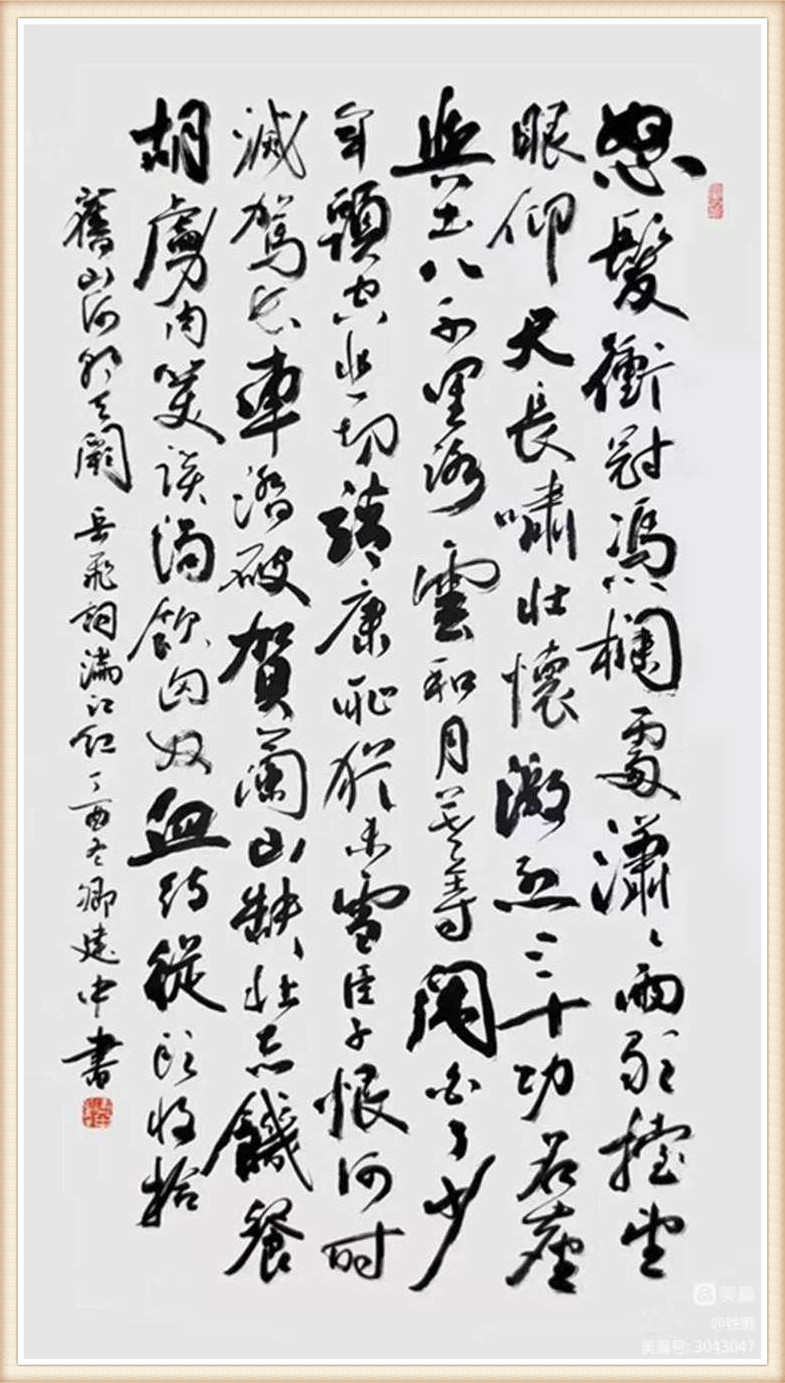 怒髮衝冠馮欄處瀟〻雨歇擡望
眼仰天長嘯壯懷激烈三十功名塵
與土八千里路雲和月莫等閑白了少
年頭空悲切靖康恥猶未雪臣子恨何時
滅駕長車踏破賀蘭山缺壯志饑餐
胡虜肉笑談渴飲匈奴血待從頭收拾
舊山河朝天闕 岳飛詞滿江紅丁酉冬卿建中書
美篇
美篇号: 3043047